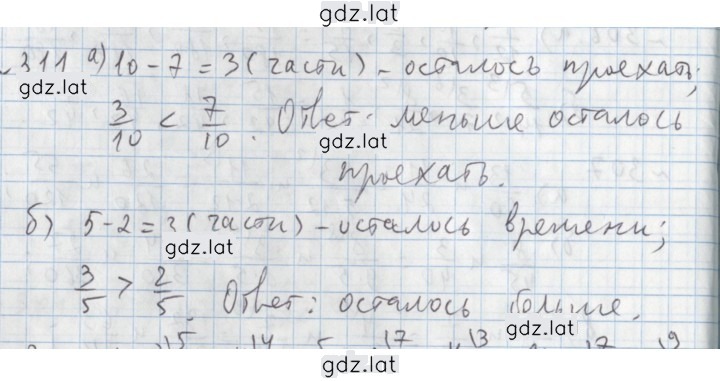 gdz.lat
311 а) 10 - 7 = 3 (части) - осталось проехать;
gdz.lat
3/10 < 7/10. Ответ: меньше осталось
gdz.lat
проехать.
б) 5 - 2 = 3 (части) - осталось времени;
gdz.lat
3/5 > 2/5. Ответ: осталось больше.
gdz.lat
15 14 5 17 13 17 19
gdz.lat